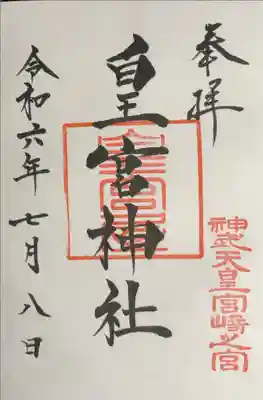 奉拝
神武天皇宮崎之宮
皇宮神社
令和六年七月八日